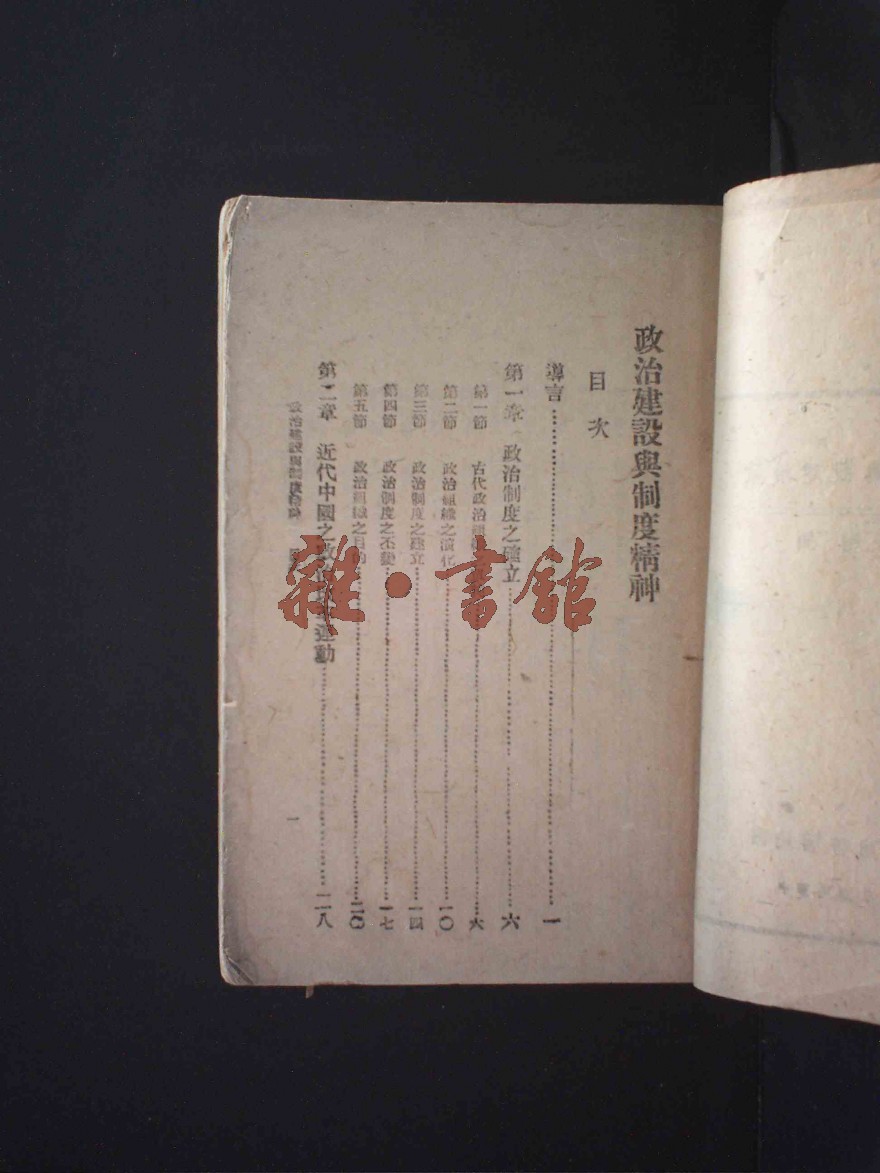 政治建設與制度精神
目次
導言……一
第一章 政治制度之確立……六
第一節 古代政治組……六
第二節 政治組織之演化……一〇
第三節 政治制度之建立……一四
第四節 政治制度之不變……一七
第五節 政治組織之目的……二〇
第二章 近代中國之政治……運動……二八
政治建設與制度精神
一
雜·書館